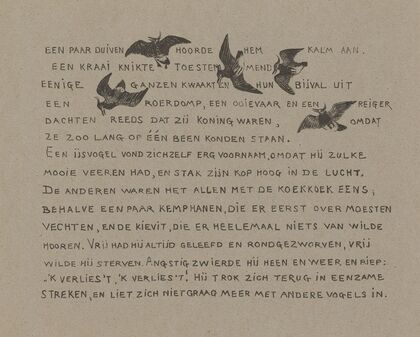 EEN PAAR DUIVEN HOORDE HEM KALM AAN.
EEN KRAAI KNIKTE TOESTEMMEND
EENIGE GANZEN KWAAKTEN HUN BIJVAL UIT
EEN ROERDOMP, EEN OOIEVAAR EN EEN REIGER
DACHTEN REEDS DAT ZIJ KONING WAREN, OMDAT
ZE ZOO LANG OP ÉÉN BEEN KONDEN STAAN.
EEN IJSVOGEL VOND ZICHZELF ERG VOORNAAM, OMDAT HIJ ZULKE
MOOIE VEEREN HAD, EN STAK ZIJN KOP HOOG IN DE LUCHT.
DE ANDEREN WAREN HET ALLEN MET DE KOEKKOEK EENS,
BEHALVE EEN PAAR KEMPHANEN, DIE ER EERST OVER MOESTEN
VECHTEN, EN DE KIEVIT, DIE ER HEELEMAAL NIETS VAN WILDE
HOOREN. VRIJ HAD HIJ ALTIJD GELEEFD EN RONDGEZWORVEN, VRIJ
WILDE HIJ STERVEN. ANGSTIG ZWIERDE HIJ HEEN EN WEER EN RIEP:
„'K VERLIES'T, 'K VERLIES'T! HIJ TROK ZICH TERUG IN EENZAME
STREKEN, EN LIET ZICH NIET GRAAG MEER MET ANDERE VOGELS IN.